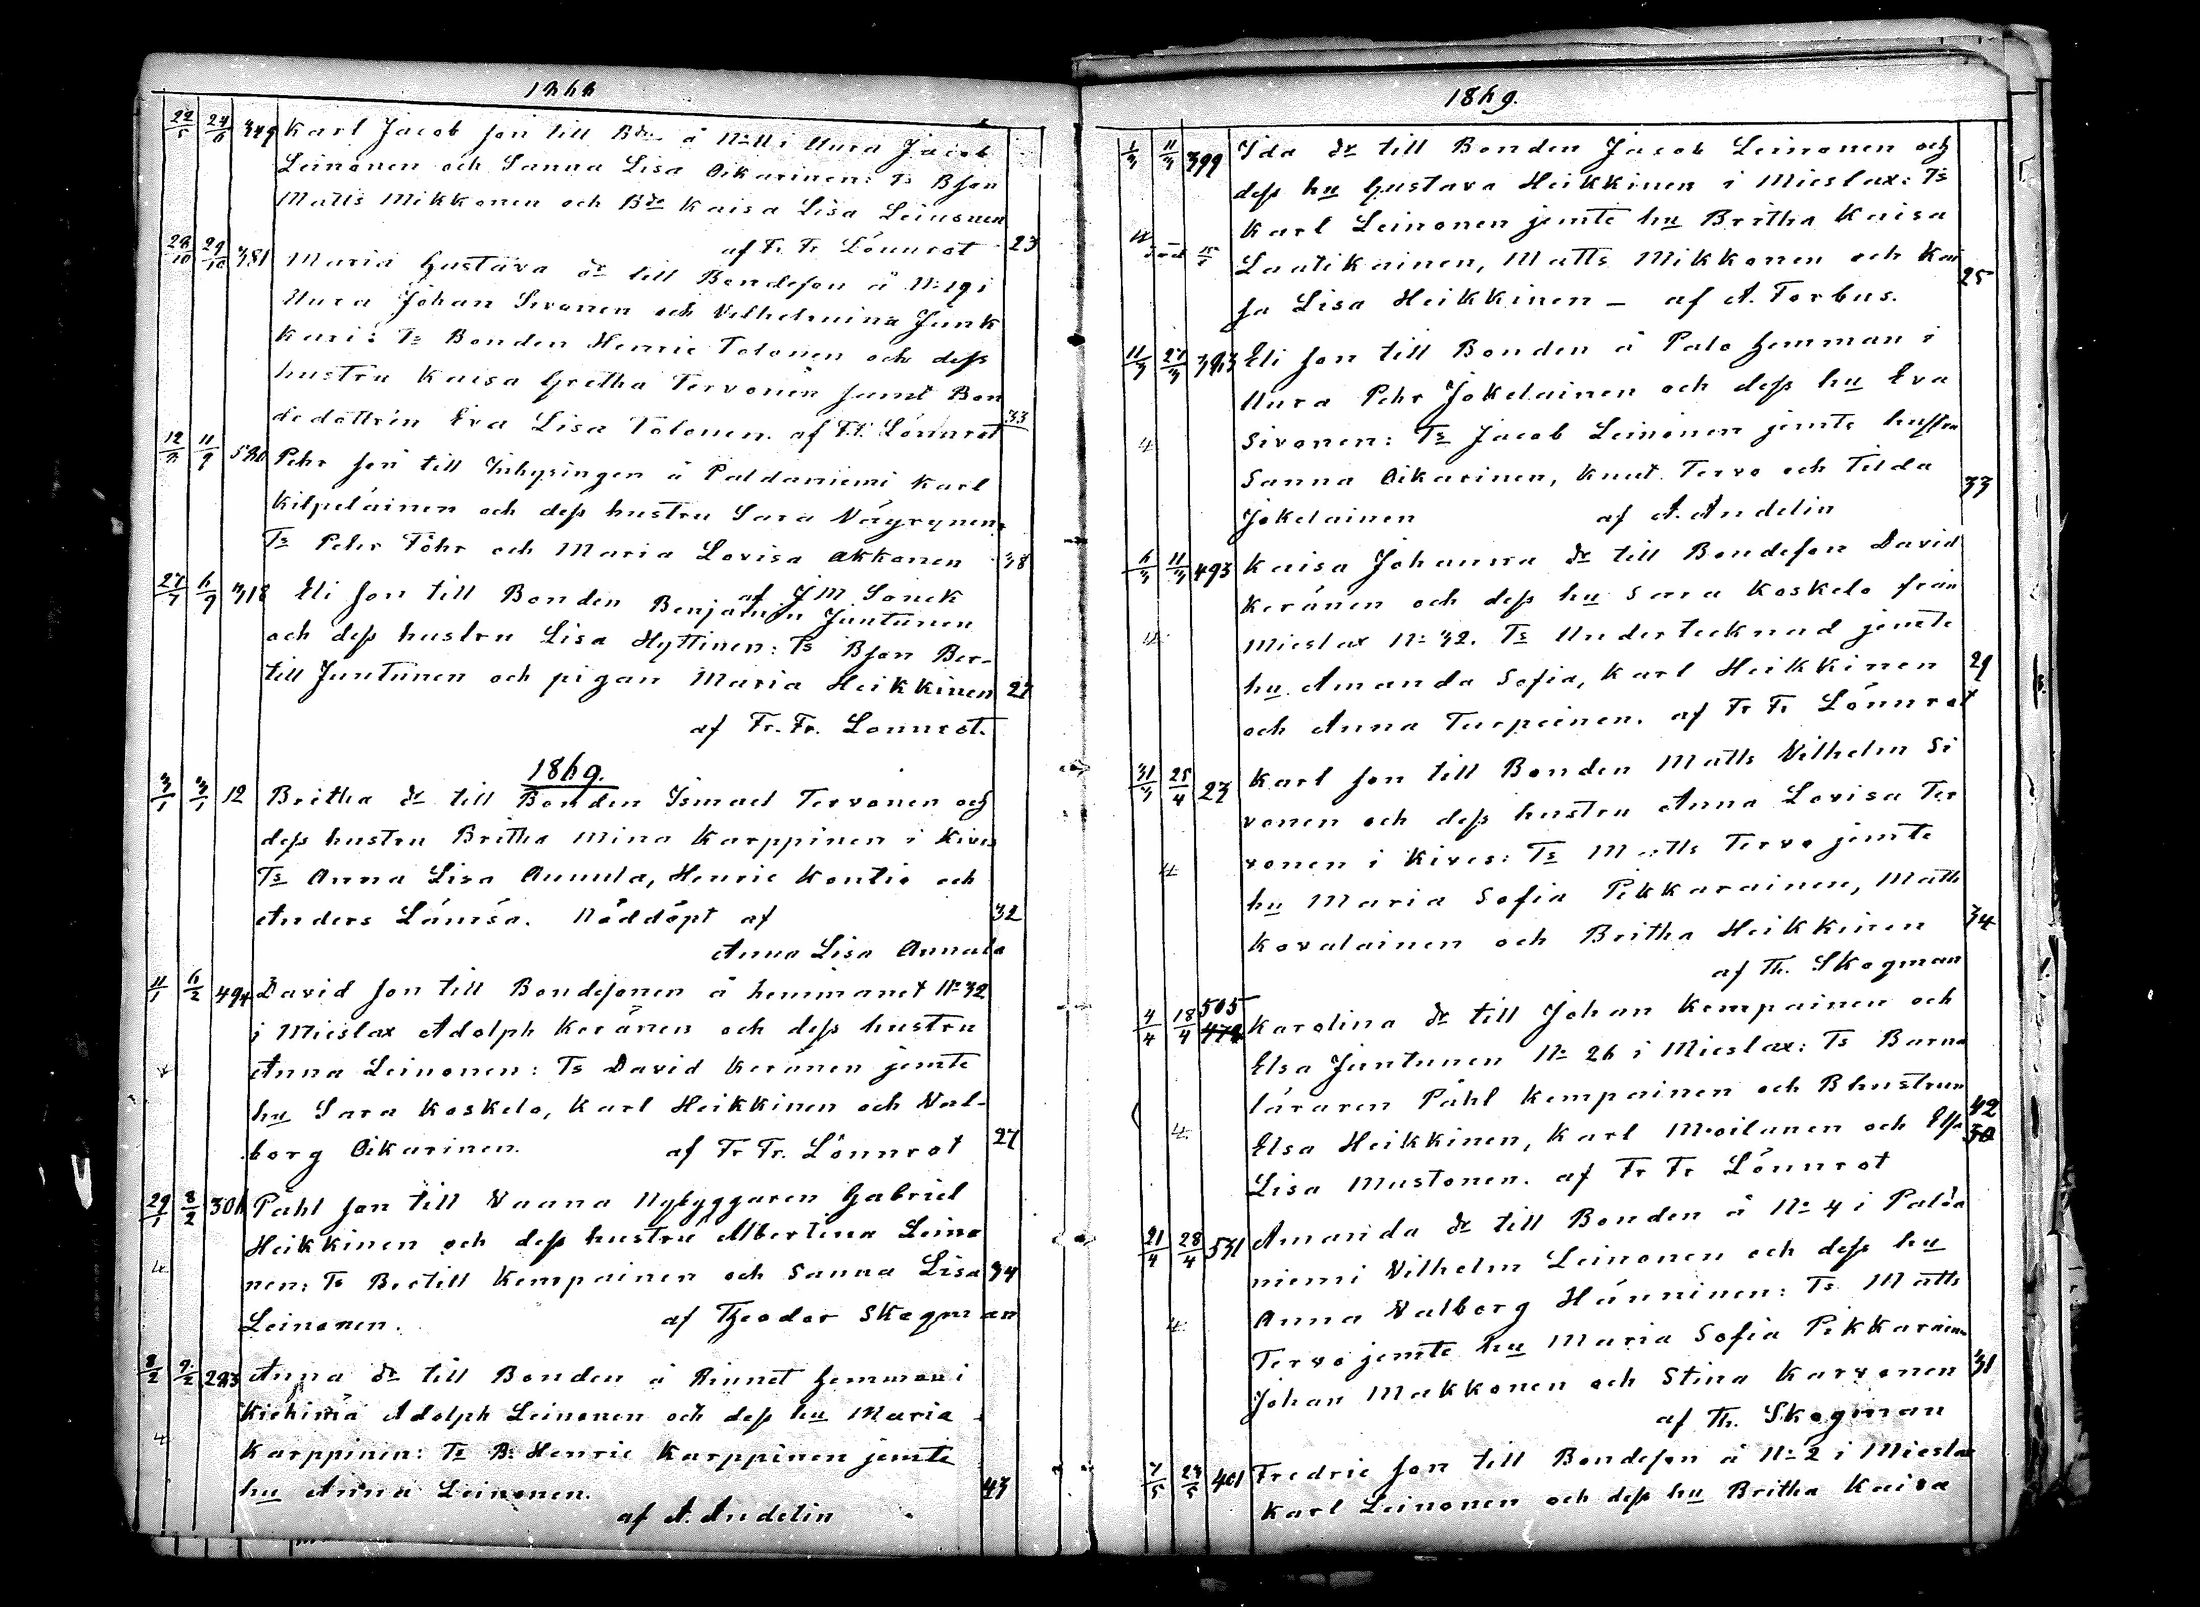 1868
22/5 24/6 349 Karl Jacob son till Bde å No 11 i Uura Jacob
Leinonen och Sanna Lisa Oikarinen: Ts Bson
Matts Mikkonen och Bdr Kaisa Lisa Leinonen
af Fr. Fr Lönnrot 23
28/10 29/10 381 Maria Gustava dr till Bondeson å No 19 i
Uura Johan Sivonen och Vilhelmina Junk
kari: Ts Bonden Henric Tolonen och dess
hustru Kaisa Gretha Tervonen samt Bon
dedottren Eva Lisa Tolonen. af F.F. Lönnrot 33
12/8 11/9 580 Pehr son till Inhysingen å Paldaniemi Karl
Kilpeläinen och dess hustru Sara Väyrynen.
Ts Pehr Föhr och Maria Lovisa Akkonen 38
af JM Sonck
27/7 6/9 318 Eli son till Bonden Benjamin Juntunen
och dess hustru Lisa Hyttinen: Ts Bson Ber-
till Juntunen och pigan Maria Heikkinen 27
af Fr. Fr. Lönnrot.
1869.
3/1 3/1 12 Britha dr till Bonden Ismael Tervonen och
dess hustru Britha Mina Karppinen i Kives
Ts Anna Lisa Annala, Henric Kontio och
Anders Lämsä. Nöddöpt af 32
Anna Lisa Annala
11/1 6/2 494 David son till Bondesonen å hemmanet No 32
i Mieslax Adolph Keränen och dess hustru
Anna Leinonen: Ts David Keränen jemte
hu Sara Koskelo, Karl Heikkinen och Val-
borg Oikarinen. af Fr Fr. Lönnrot 27
29/1 8/2 306 Påhl son till Vaana Nybyggaren Gabriel
Heikkinen och dess hustru Albertina Leino
nen: Ts Bertill Kempainen och Sanna Lisa 34
Leinonen. af Theodor Skogman
8/2 9/2 283 Anna dr till Bonden å Rinnet hemman i
Kiehimä Adolph Leinonen och dess hu Maria
Karppinen: Ts B: Henric Karppinen jemte
hu Anna Leinonen. 43
af A. Andelin
1869.
1/3 11/3 399 Ida dr till Bonden Jacob Leinonen och
dess hu Gustava Heikkinen i Mieslax: Ts
Karl Leinonen jemte hu Britha Kaisa
Laatikainen, Matts Mikkonen och Kai
sa Lisa Heikkinen – af A. Forbus. 25
11/3 27/3 393 Eli son till Bonden å Palo hemman i
Uura Pehr Jokelainen och dess hu Eva
Sivonen: Ts Jacob Leinonen jemte hustru
Sanna Oikarinen, Knut Tervo och Tilda
Jokelainen af A. Andelin 33
6/3 11/3 493 Kaisa Johanna dr till Bondeson David
Keränen och dess hu Sara Koskelo från
Mieslax No 32. Ts Undertecknad jemte
hu Amanda Sofia, Karl Heikkinen 29
och Anna Turpeinen. af Fr Fr Lönnrot
31/3 25/4 23 Karl son till Bonden Matts Vilhelm Si
vonen och dess hustru Anna Lovisa Ter
vonen i Kives: Ts Matts Tervo jemte
hu Maria Sofia Pikkarainen, Matts
Kovalainen och Britha Heikkinen 34
af Th. Skogman
4/4 18/4 505 Karolina dr till Johan Kempainen och
Elsa Juntunen No 26 i Mieslax: Ts Barna
läraren Påhl Kempainen och Bhustrun 42
Elsa Heikkinen, Karl Moilanen och Elsa 30
Lisa Mustonen. af Fr Fr Lönnrot
21/4 28/4 531 Amanda dr till Bonden å No 4 i Palda
niemi Vilhelm Leinonen och dess hu
Anna Valborg Hänninen: Ts Matts
Tervo jemte hu Maria Sofia Pikkarainen
Johan Makkonen och Stina Karvonen 31
af Th. Skogman
7/5 27/5 401 Fredric son till Bondeson å No 2 i Mieslax
Karl Leinonen och dess hu Britha Kaisa